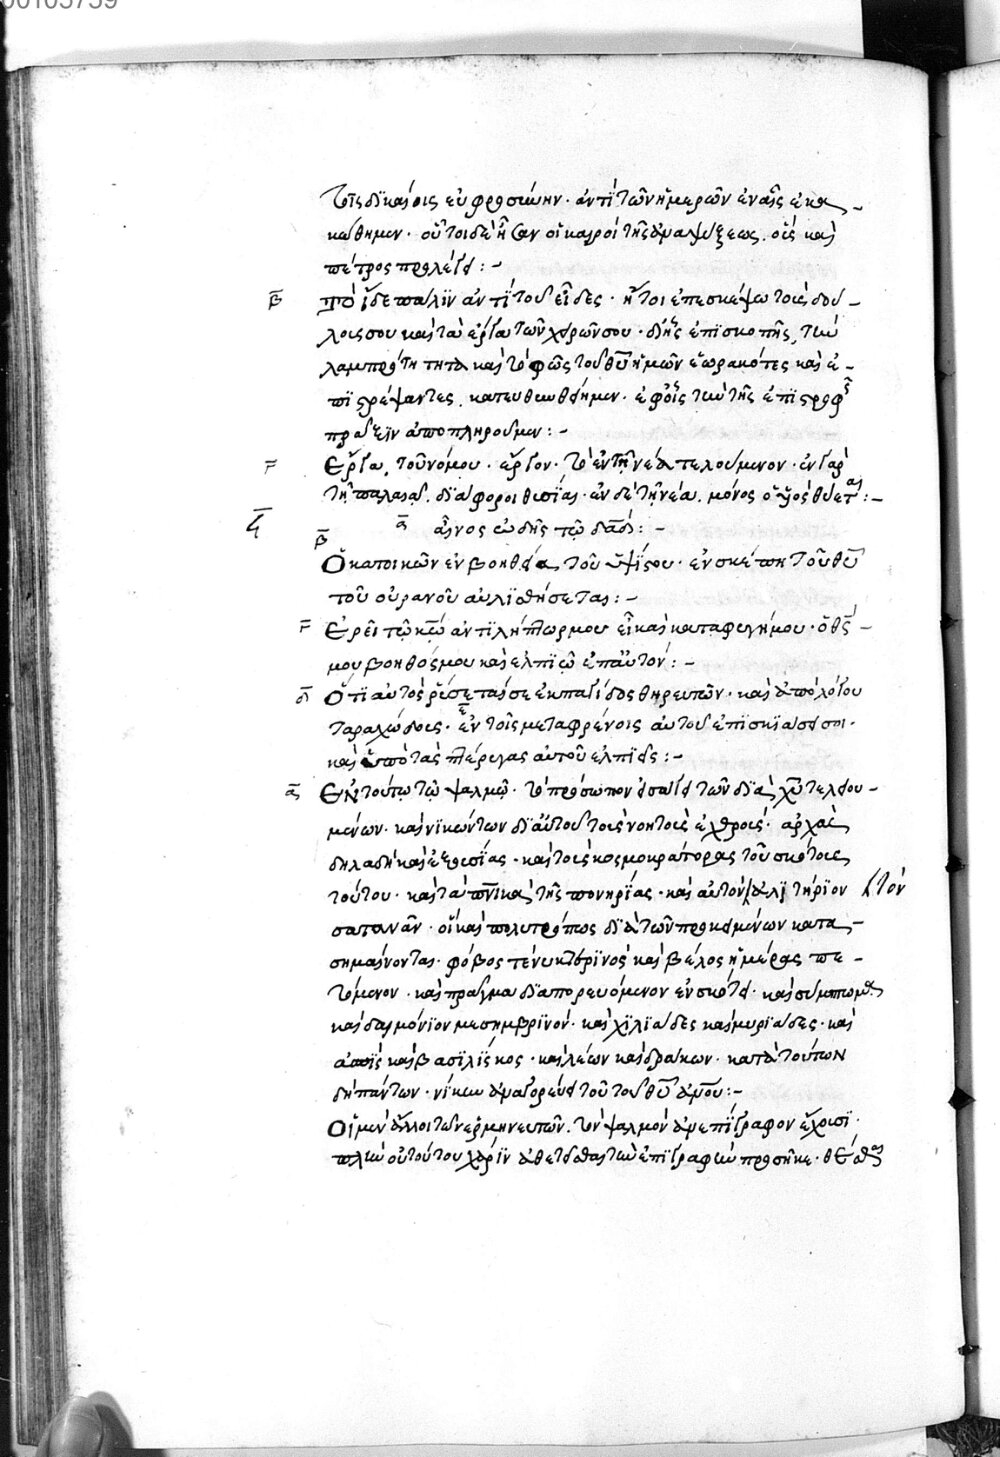 00105759
τοῖς δϊκαίοις εὐφροσύνην· ἀντὶ τῶν ἡμερῶν ἐν αἷς ἐκα
κώθημεν· οὗτοι δὲ ἦσαν οἱ καιροὶ τῆς ἀναψύξεως. οἷς καὶ
πέτρος προλέγει :-
β̅ Τὸ ἴδε πάλϊν ἀντὶ τοῦ εἶδες· ἤτοι ἐπεσκέψω τοὺς δού
λους σου καὶ τὰ ἔργα τῶν χειρῶν σου· δι' ἧς ἐπισκοπῆς, τὴν
λαμπρότητητα καὶ τὸ φῶς τοῦ θυ ἡμῶν ἑωρακότες καὶ ἐ
πϊστρέψαντες. κατευθύνθημεν· ἐφ' οἷς τὴν τῆς ἐπϊστροφῆς
πρᾶξϊν ἀποπληροῦμεν :-
γ̅ Ἔργα, τοῦ νόμου· ἔργον· τὸ ἐν τῇ νέα τελούμενον· ἐν γὰρ
τῇ παλαιᾷ, διάφοροι θυσίαι· ἐν δὲ τῇ νέα. μόνος ὁ υἱὸς θύεται :-
ϟ̅ α̅ αἶνος ὠδῆς τῷ δαδ :-
β̅
Ὁ κατοικῶν ἐν βοηθεία τοῦ ὑψίστου· ἐν σκέπη τοῦ θυ
τοῦ οὐρανοῦ αὐλϊσθήσεται :-
γ̅ Ἐρεῖ τῷ κω ἀντϊλήπτωρ μου εἶ καὶ καταφυγή μου· ὁ θς
μου βοηθός μου καὶ ἐλπιῶ ἐπ' αὐτόν :-
δ̅ Ὅτϊ αὐτὸς ῥύσεταί σε ἐκ παγίδος θηρευτῶν· καὶ ἀπὸ λόγου
ταραχώδους· ε̅ ἐν τοῖς μεταφρένοις αὐτοῦ ἐπϊσκϊάσει σοι·
καὶ ὑπὸ τὰς πτέρυγας αὐτοῦ ἐλπιεῖς :-
α̅ Ἐν τούτω τῷ ψαλμῷ· τὸ πρόσωπον εἰσάγει τῶν δϊὰ χυ τελειου
μένων· καὶ νϊκώντων δϊ αὐτοῦ τοὺς νοητοὺς ἐχθρούς· ἀρχὰς
δηλαδὴ καὶ ἐξουσίας· καὶ τοὺς κοσμοκράτορας τοῦ σκότους
τούτου· καὶ τὰ πνικὰ τῆς πονηρίας· καὶ αὐτὸν τὸν ἀλϊτήριον
σατανᾶν· οὓς καὶ πολυτρόπως δϊὰ τῶν προκειμένων κατα
σημαίνονται. φόβος τε νυκτερϊνὸς καὶ βέλος ἡμέρας πε
τόμενον· καὶ πρᾶγμα διαπορευόμενον ἐν σκότει· καὶ σύμπτωμα
καὶ δαιμόνϊον μεσημβρϊνόν· καὶ χϊλϊάδες καὶ μυρϊάδες· καὶ
ἀσπὶς καὶ βασϊλίσκος· καὶ λέων καὶ δράκων· κατὰ τούτων
δὴ πάντων· νίκην ἀναγορεύει τοῦτου θυ
Οἱ μὲν ἄλλοι τῶν ἑρμηνευτῶν. τὸν ψαλμὸν ἀνεπίγραφον ἔχουσϊ·
τὴν ἐπϊγραφὴν προσῆκε·